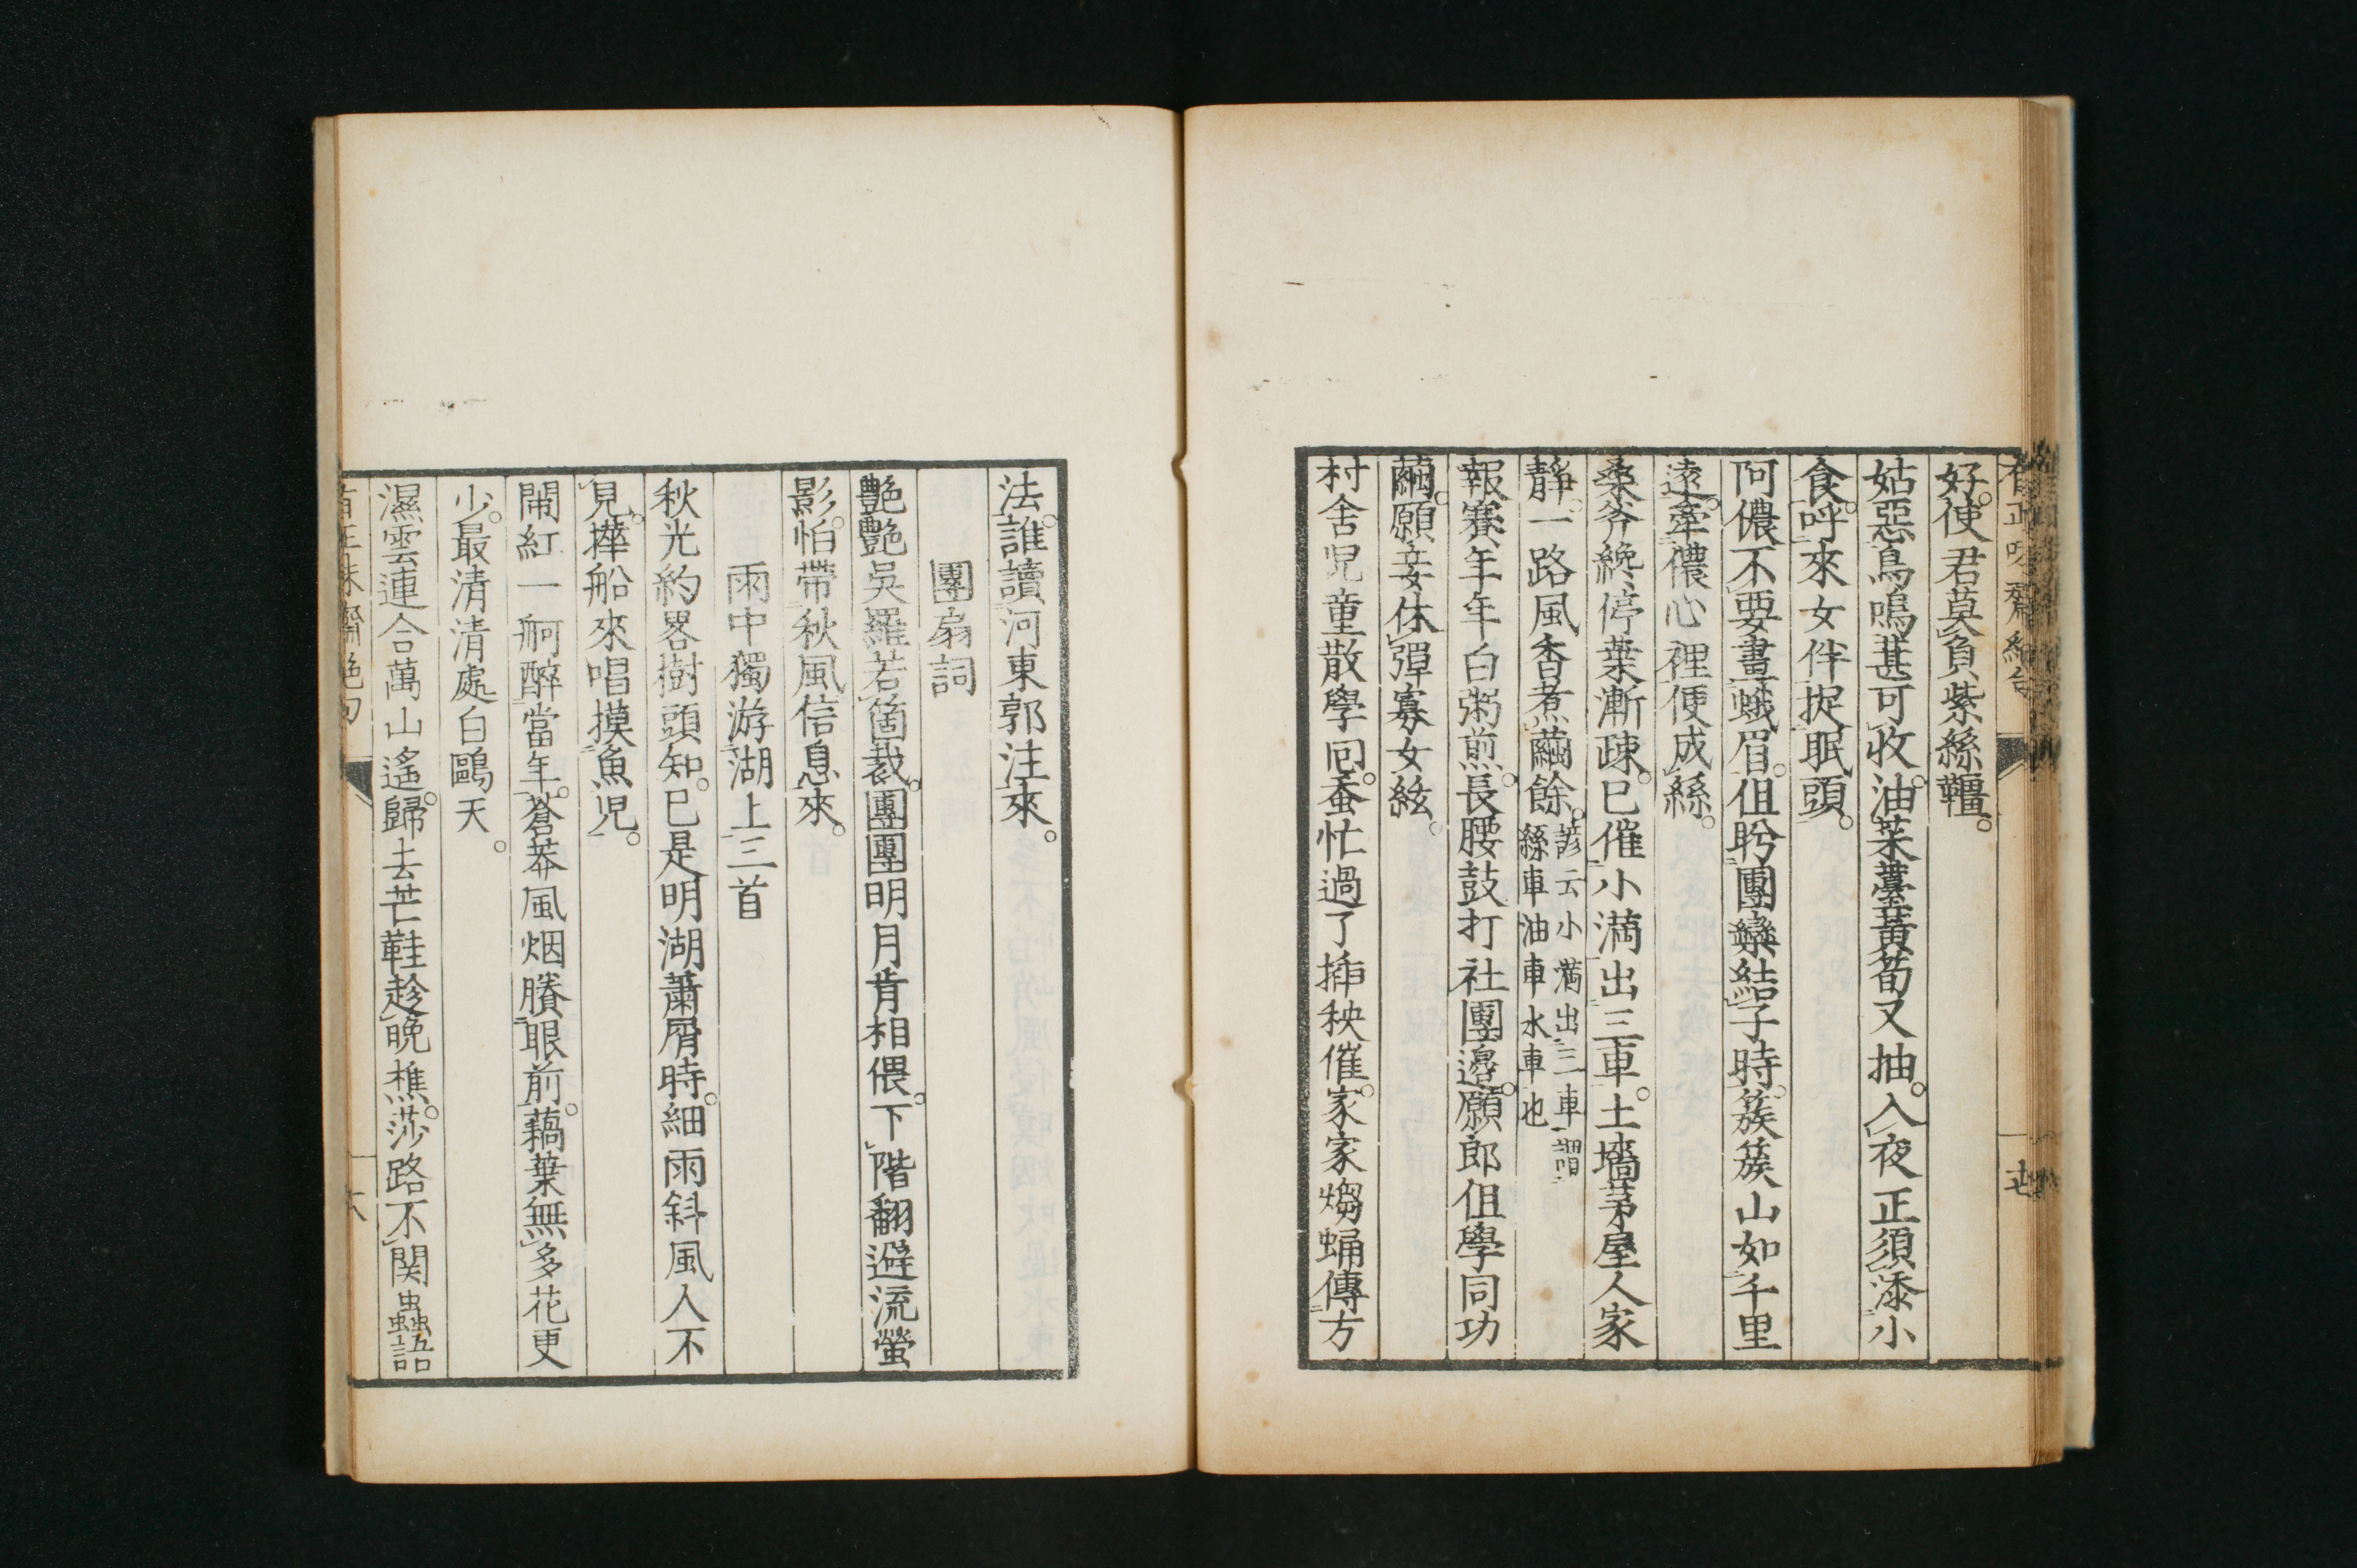 有正味齋絶句
十七
好。使君莫負紫絲韁。
姑惡鳥鳴甚可收。油菜薹黃筍又抽。入夜正須添小
食。呼來女伴捉眠頭。
阿儂不要畫蛾眉。但盻團欒結子時。簇簇山如千里
遠。牽儂心裡便成絲。
桑斧纔停葉漸疎。已催小滿出三車。土墻茅屋人家
靜。一路風香煮繭餘。諺云小滿出三車謂
絲車油車水車也
報賽年年白粥煎。長腰鼓打社團邊。願郎但學同功
繭。願妾休彈寡女絃。
村舍児童散學回。蚕忙過了揷秧催。家家煼蛹傳方
法。誰讀河東郭注來。
團扇詞
艶艶吳羅若箇裁。團團明月肯相偎。下階翻避流螢
影。怕帶秋風信息來。
雨中獨游湖上三首
秋光約畧樹頭知。已是明湖蕭屑時。細雨斜風人不
見。擽船來唱摸魚児。
鬧紅一舸醉當年。蒼莽風烟賸眼前。藕葉無多花更
少。最清清處白鷗天。
濕雲連合萬山遙。歸去芒鞋趁晩樵。莎路不関蟲語
有正味齋絶句